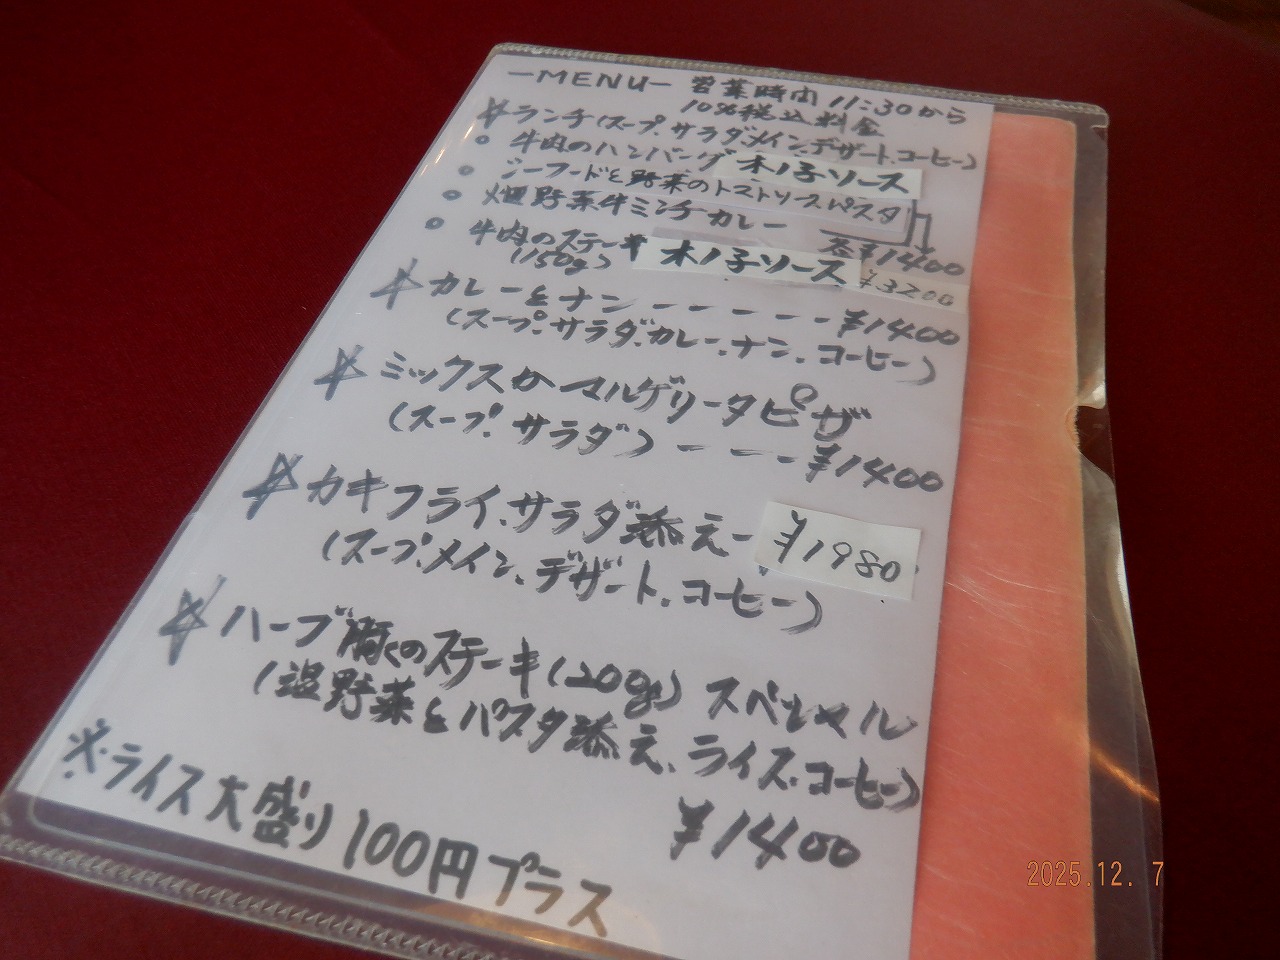 ーMENUー 営業時間 11:30から
10%税込料金
ランチ(スープ.サラダ.メイン.デザート.コーヒー)
牛肉のハンバーグ 木ノ子ソース
シーフードと野菜のトマトソースパスタ
畑野菜牛ミンチカレー
各¥1400
牛肉のステーキ 木ノ子ソース ¥3200
(150g)
カレーとナン ----- ¥1400
(スープ.サラダ.カレー、ナン、コーヒー)
ミックスかマルゲリータピザ
(スープ.サラダ) --- ¥1400
カキフライ、サラダ添えー ¥1980
(スープ.メイン、デザート、コーヒー)
ハーブ豚のステーキ(120g) スペシャル
(温野菜とパスタ添え、ライス.コーヒー)
¥1400
※ライス大盛り100円プラス
2025.12. 7